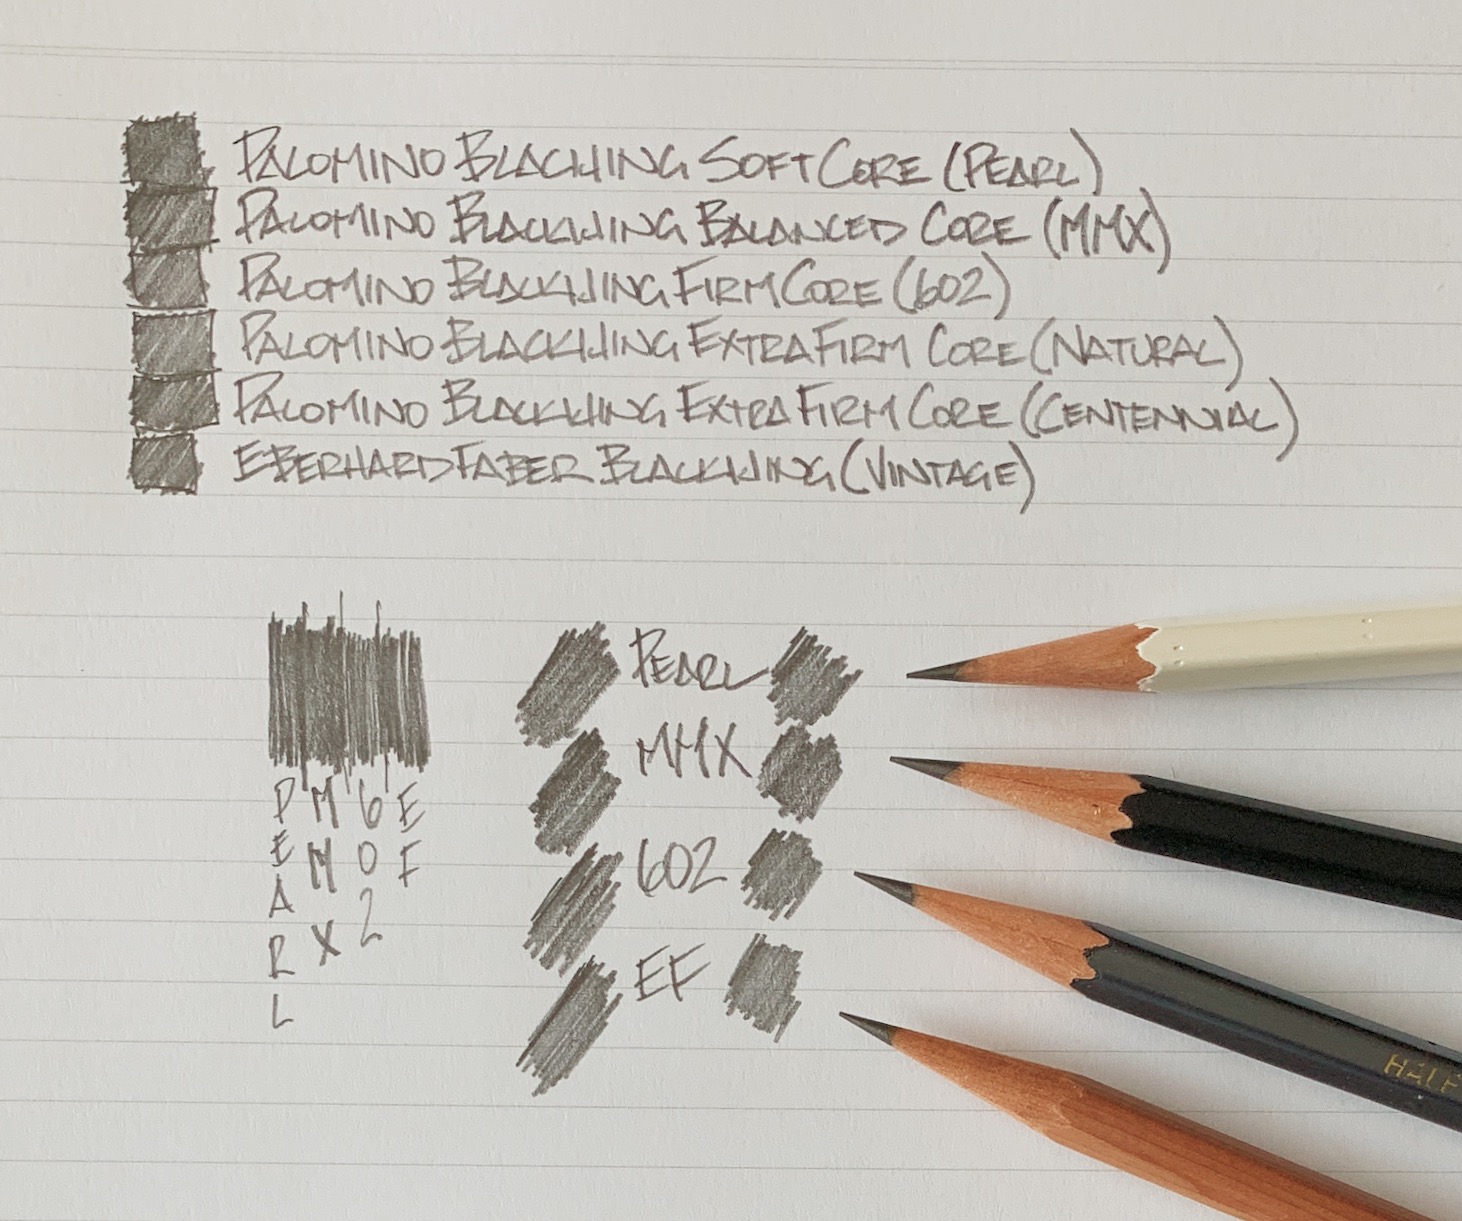 PALOMINO BLACKWING SOFT CORE (PEARL)
PALOMINO BLACKWING BALANCED CORE (MMX)
PALOMINO BLACKWING FIRM CORE (602)
PALOMINO BLACKWING EXTRA FIRM CORE (NATURAL)
PALOMINO BLACKWING EXTRA FIRM CORE (CENTENNIAL)
EBERHARD FABER BLACKWING (VINTAGE)
PEARL
MMX
602
EF
PEARL
MMX
602
EF
HALF